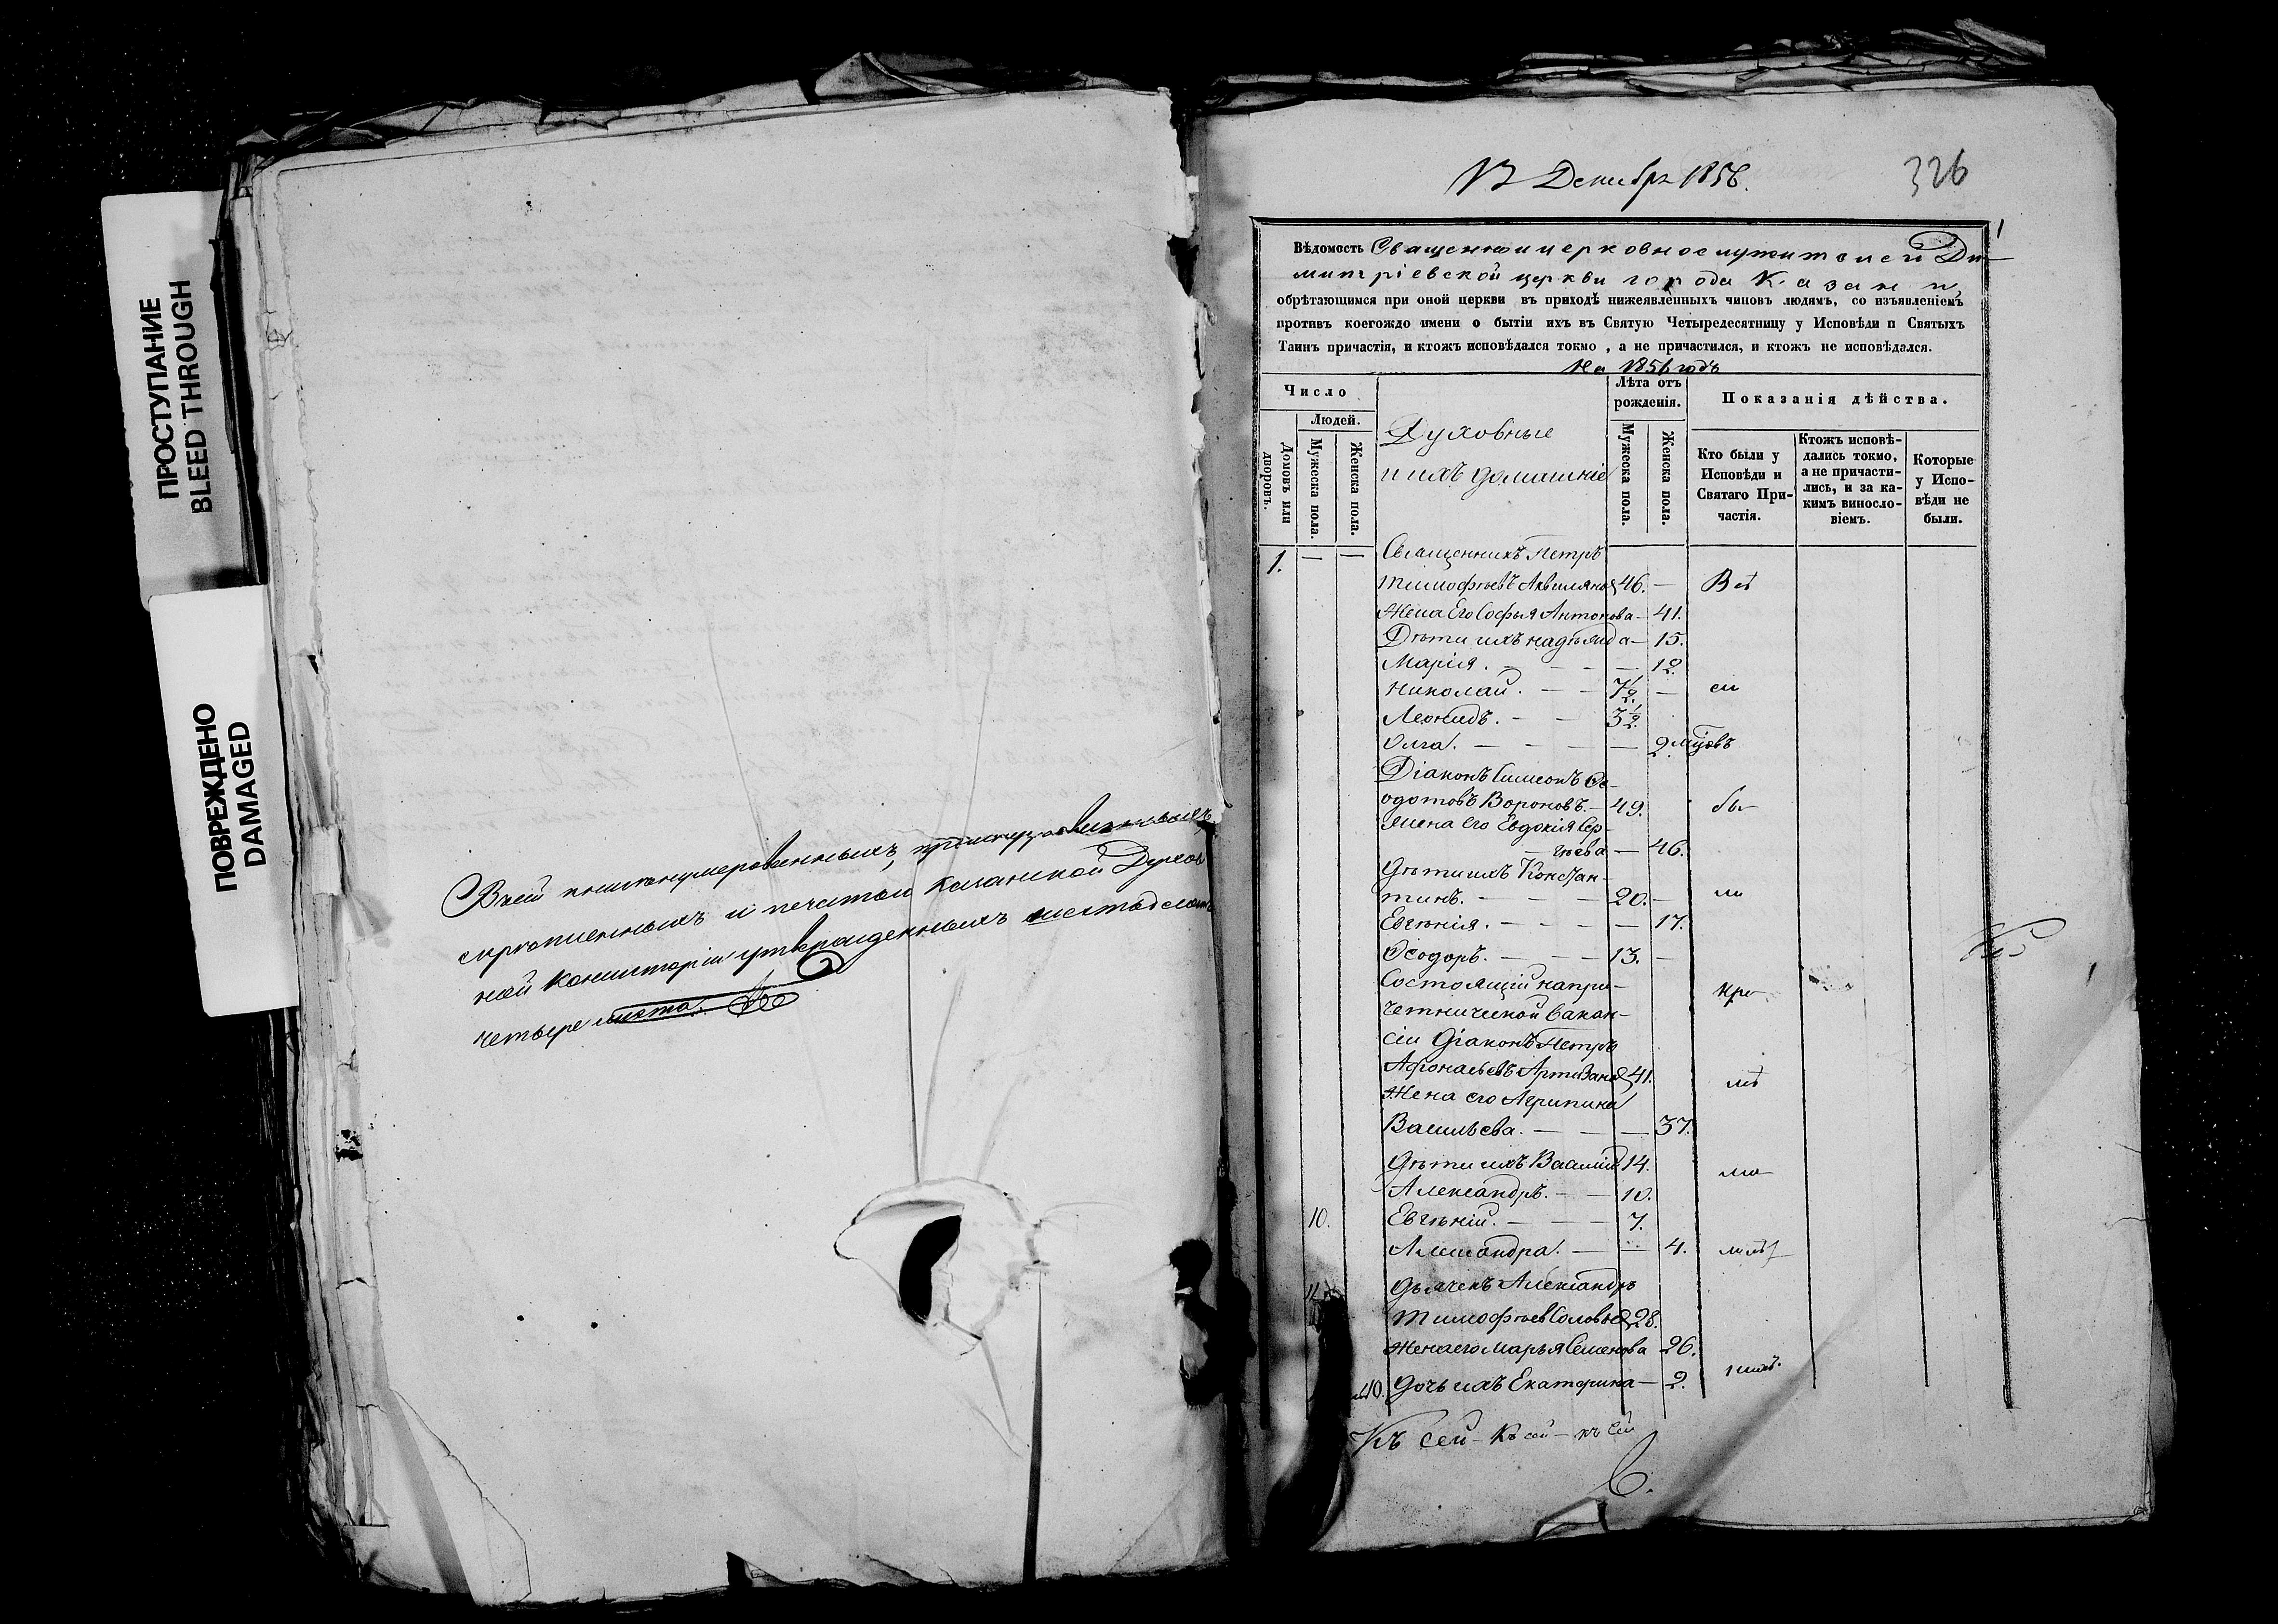 ПРОСТУПАНИЕ
BLEED THROUGH
ПОВРЕЖДЕНО
DAMAGED
В сей книге нумерованныхъ, прошнурованныхъ
скрепленныхъ и печатью Казанской Духов
ной Консисторіи утвержденныхъ шестьдесятъ
четыре листа.
13 Декабря 1856.
326
1
Вѣдомость Священноицерковнослужителей Ди-
митріевской церкви города Казани,
обрѣтающимся при оной церкви въ приходѣ нижеявленныхъ чиновъ людямъ, со изъявленіемъ
противъ коегождо имени о бытіи ихъ въ Святую Четыредесятницу у Исповѣди и Святыхъ
Таинъ причастія, и ктожъ исповѣдался токмо, а не причастился, и ктожъ не исповѣдался.
На 1856 годъ
Число
Людей.
Домовъ или дворовъ.
Мужеска пола.
Женска пола.
Духовные
и ихъ домашніе
Лѣта отъ рожденія.
Мужеска пола.
Женска пола.
Показанія дѣйства.
Кто были у Исповѣди и Святаго Причастія.
Ктожъ исповѣдались токмо, а не причастились, и за какимъ винословіемъ.
Которые у Исповѣди не были.
1. — — Священникъ Петръ
Тимофѣевъ Аквиляновъ 46. — Всѣ
Жена Его Софья Антонова — 41.
Дѣти ихъ Надѣжда — 15.
Марія. — — — 12.
Николай. — — 7½. — сіи
Леонидъ. — — 3½.
Олга. — — — — 2 мцовъ
Діаконъ Симеонъ Ѳе-
одотовъ Вороновъ. — 49. бы
Жена его Евдокія Сер-
гѣева — 46.
Дѣти ихъ Констан-
тинъ. — — — 20. — ли
Евгенія. — — — — 17.
Ѳеодоръ. — — — 13. —
Состоящій на при-
четнической вакан-
сіи Діаконъ Петръ
41.
Жена его Агрипина
Васильева. — — — 37.
Дѣти ихъ Василій 14.
Александръ. — — 10.
10. Евгѣній. — — — 7.
Александра. — — 4.
11. Дьячекъ Александръ
Тимофѣевъ Соловьев 28.
Жена его Марья Семенова 26.
10. Дочь ихъ Екатерина — 2.
Къ сей — Къ сей — къ сей